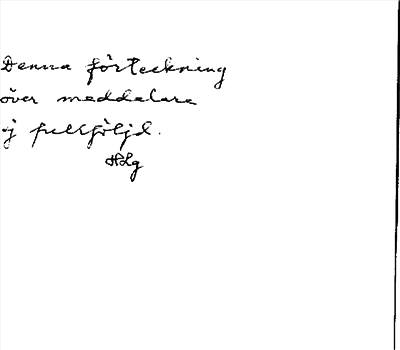 Denna förteckning
över meddelare
ej fullföljd.
HLg